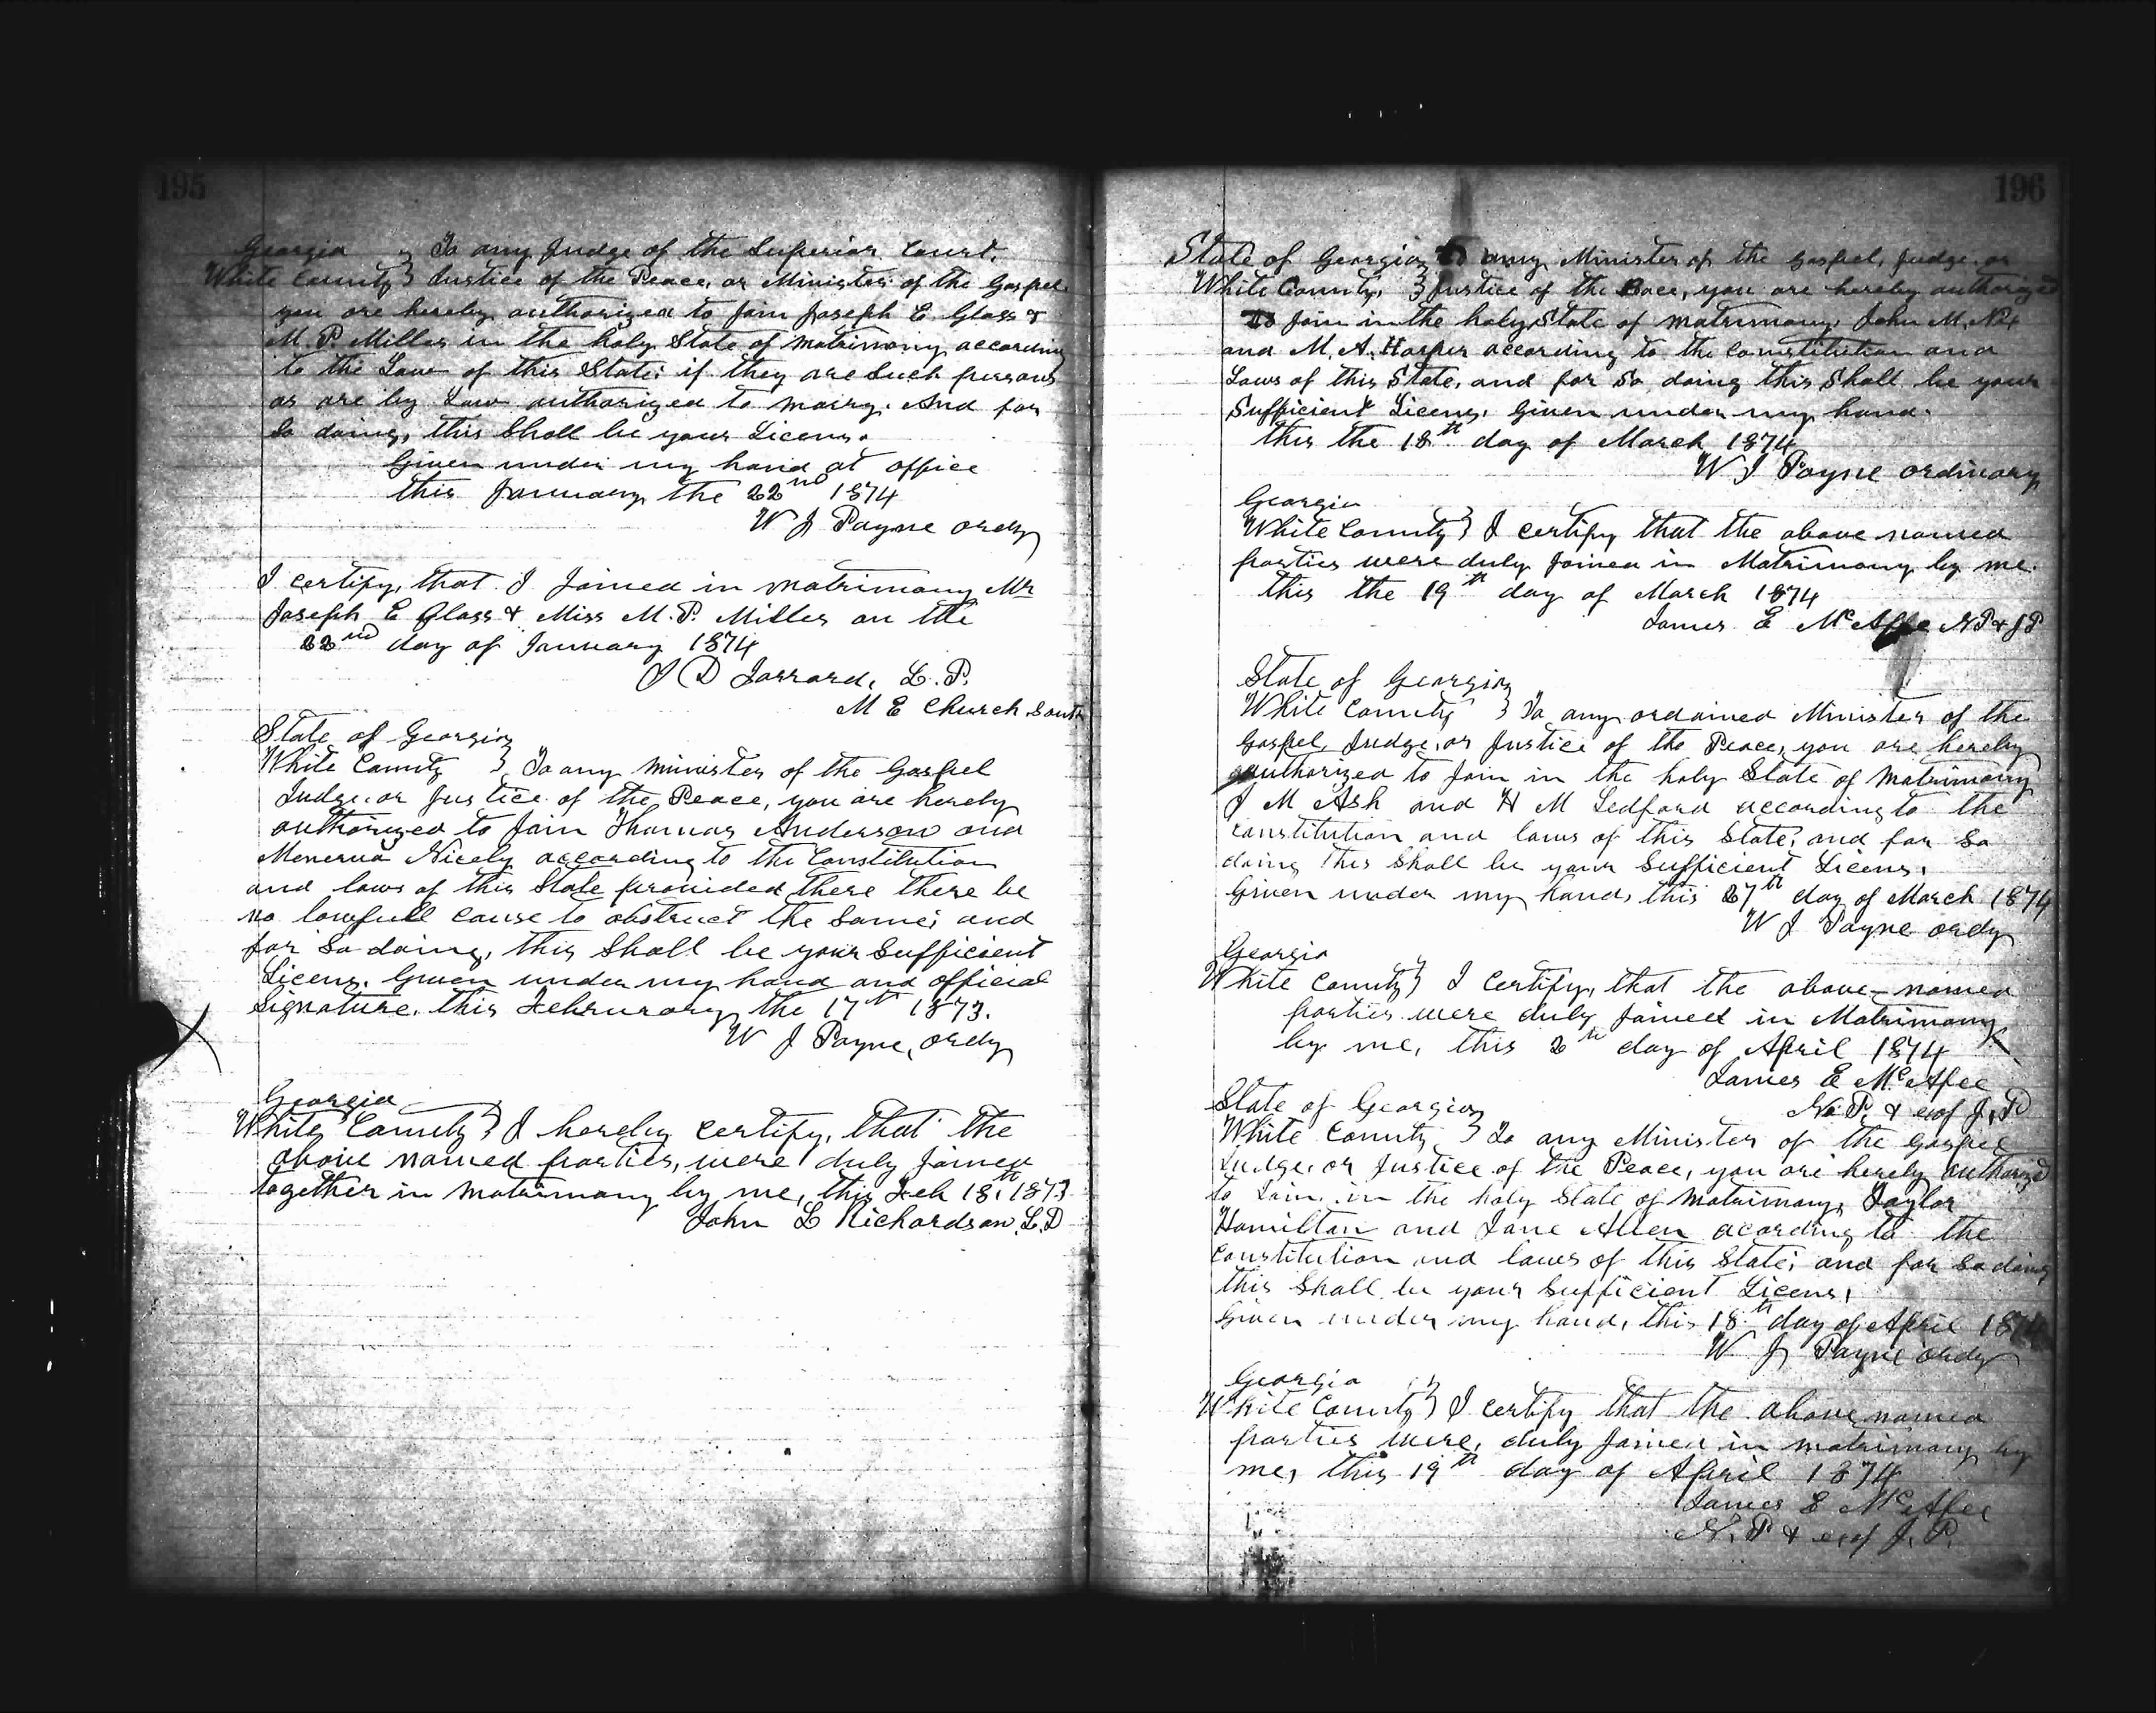 195
Georgia } To any Judge of the Superior Court,
White County } Justice of the Peace, or Minister of the Gospel
you are hereby authorized to join Joseph E. Glass &
M. P. Miller in the holy State of Matrimony according
to the Law of this State; if they are Such persons
as are by Law authorized to marry. And for
So doing, this Shall be your Licens.
Given under my hand at office
this January the 22nd 1874
W J Payne ordy
I certify, that I joined in matrimony Mr
Joseph E Glass & Miss M. P. Miller on the
22nd day of January 1874
D Jarrard, L. P.
M E Church South
State of Georgia
White County } To any minister of the Gospel
Judge, or Justice of the Peace, you are hereby
authorized to join Thomas Anderson and
Menerva Nicely according to the Constitution
and laws of this State provided there there be
no lawfull cause to obstruct the Same; and
for So doing, this Shall be your Sufficient
Licens. Given under my hand and official
Signature. this Februrary the 17th 1873.
W J Payne, ordy
Georgia
White County } I hereby certify, that the
above named parties, were duly joined
together in Matrimony by me, this Feb 18th 1873
John L Richardson L.D
196
State of Georgia } To any Minister of the Gospel, Judge, or
White County, } Justice of the Peace, you are hereby authorized
To join in the holy State of matrimony, John M. Nix
and M. A. Harper according to the Constitution and
Laws of this State, and for So doing this Shall be your
Sufficient Licens. Given under my hand.
this the 18th day of March 1874
W J Payne ordinary
Georgia
White County } I certify that the above named
parties were duly joined in Matrimony by me.
this the 19th day of March 1874
James E McAfee N P & J P
State of Georgia
White County } To any ordained Minister of the
Gospel, Judge, or Justice of the Peace, you are hereby
authorized to join in the holy State of Matrimony
J M Ash and H M Ledford according to the
constitution and laws of this State; and for So
doing this Shall be your Sufficient Licens.
Given under my hand, this 27th day of March 1874
W J Payne ordy
Georgia
White County } I certify, that the above-named
parties were duly joined in Matrimony
by me, this 2th day of April 1874
James E McAfee
N. P. & exof J. P
State of Georgia
White County } To any Minister of the Gospel
Judge, or Justice of the Peace, you are hereby authorized
to Join, in the holy State of Matrimony, Taylor
Hamilton and Jane Allen acording to the
constitution and laws of this State; and for So doing
this Shall be your Sufficient Licens,
Given under my hand, this 18th day of April 1874
W J Payne ordy
Georgia
White County } I certify that the above named
parties were, duly joined in matrimony by
me, this 19th day of April 1874
James E McAfee
N. P. & exof J. P.